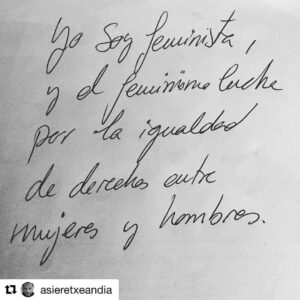 Yo soy feminista,
y el feminismo lucha
por la igualdad
de derechos entre
mujeres y hombres.
asieretxeandia